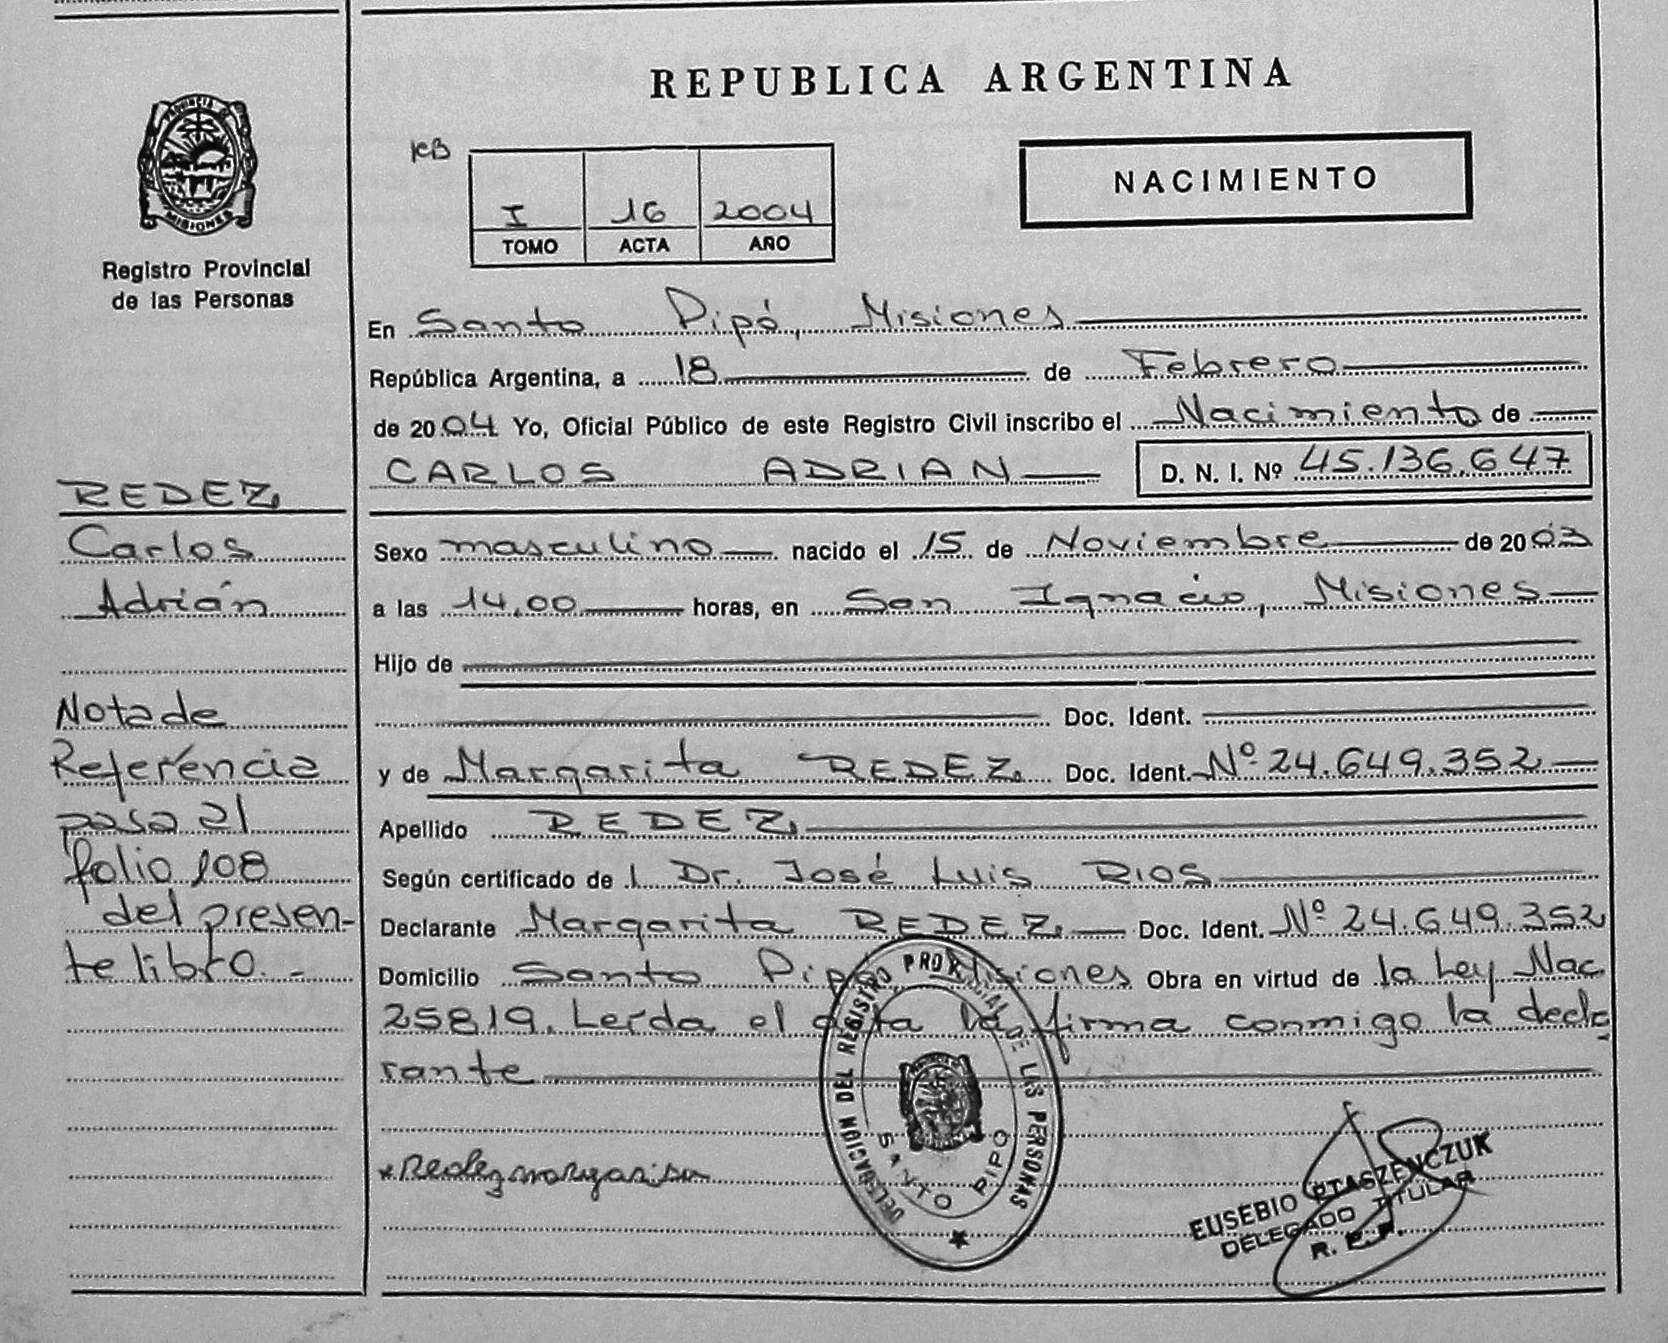 REPUBLICA ARGENTINA
PROVINCIA
MISIONES
Registro Provincial
de las Personas
KB
I 16 2004
TOMO ACTA AÑO
NACIMIENTO
En Santo Pipó, Misiones
República Argentina, a 18 de Febrero
de 2004 Yo, Oficial Público de este Registro Civil inscribo el Nacimiento de
CARLOS ADRIAN D. N. I. Nº 45.136.647
Sexo masculino nacido el 15 de Noviembre de 2003
a las 14,00 horas, en San Ignacio, Misiones
Hijo de
Doc. Ident.
y de Margarita REDEZ Doc. Ident. Nº 24.649.352
Apellido REDEZ
Según certificado de l Dr. José Luis RIOS
Declarante Margarita REDEZ Doc. Ident. Nº 24.649.352
Domicilio Santo Pipó Misiones Obra en virtud de la Ley Nac
25819. Leída el acta la firma conmigo la decla
rante
Redez margarita
REDEZ
Carlos
Adrián
Nota de
Referencia
pasa al
folio 108
del presen-
te libro.-
DELEGACION DEL REGISTRO PROVINCIAL DE LAS PERSONAS
SANTO PIPO
EUSEBIO PTASZENCZUK
DELEGADO TITULAR
R. P. P.